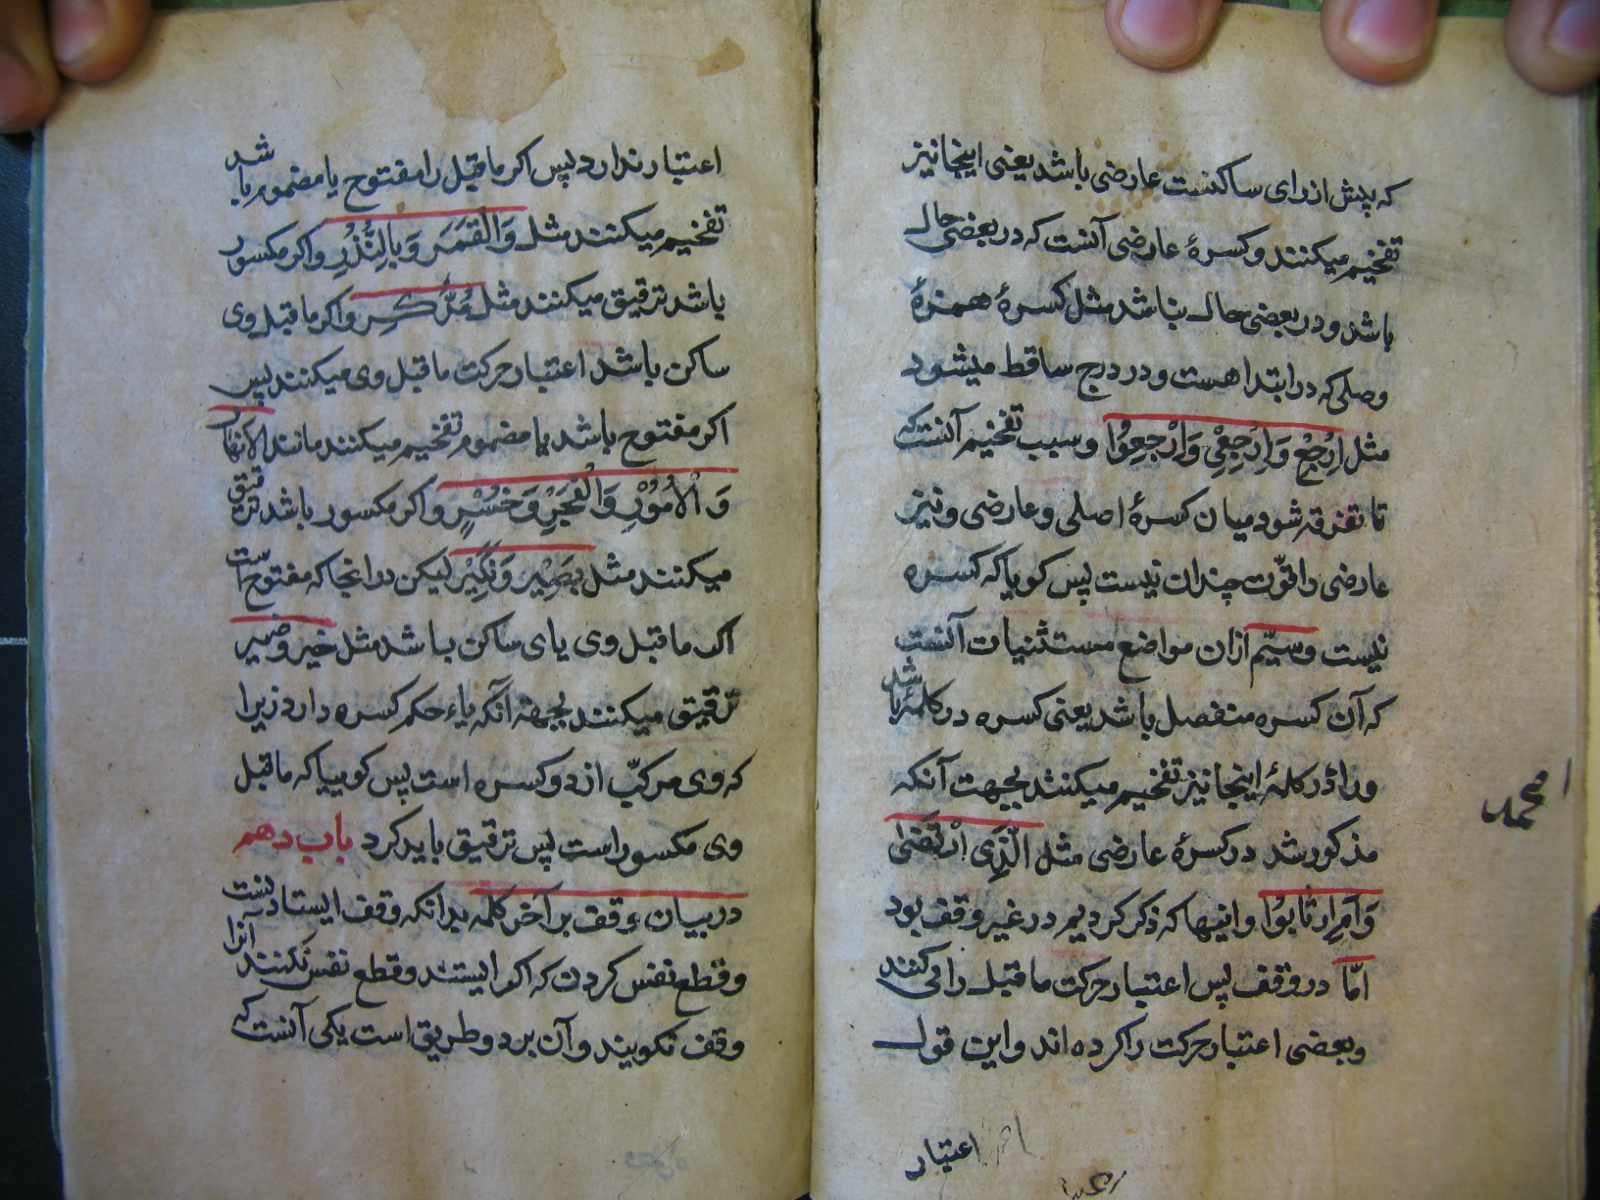 که پیش از رای ساکنست عارضی باشد یعنی اینجا نیز
تفخیم میکنند و کسرهٔ عارضی آنست که در بعضی حال
باشد و در بعضی حال نباشد مثل کسرهٔ همزهٔ
وصلی که در ابتدا هست و در درج ساقط میشود
مثل اِرْجِعْ وَاِرْجِعْیِ وَارْجِعِوُا و سبب تفخیم آنست که
تا تفرقه شود میان کسرهٔ اصلی و عارضی و نیز
عارضی را قوّت چندان نیست پس کویا که کسره
نیست و سیّم ازان مواضع مستثنیات آنست
که آن کسره منفصل باشد یعنی کسره در کلمهٔ باشد
و را در کلمهٔ اینجا نیز تفخیم میکنند بجهت آنکه
مذکور شد در کسرهٔ عارضی مثل الَّذِی ارْتَضٰی
وَاَمِ ارتابوُا و اینها که ذکر کردیم در غیر وقف بود
امّا در وقف پس اعتبار حرکت ماقبل را می کنند
و بعضی اعتبار حرکت را کرده اند و این قول
اعتبار
محمد
اعتبار ندارد پس اکر ماقبل را مفتوح یا مضموم باشد
تفخیم میکنند مثل وَالْقَمَرَ وَبِالنُّذُرِ و اکر مکسور
باشد ترقیق میکنند مثل مُدَّکِرِ و اکر ماقبل وی
ساکن باشد اعتبار حرکت ماقبل وی میکنند پس
اکر مفتوح باشد یا مضموم تفخیم میکنند مانند الانهار
وَالْاُمُوْرِ وَالْفَجْرِ وَخُسْرٍ و اکر مکسور باشد ترقیق
میکنند مثل بَصَیِْر وَنَکِیْر لیکن در انجا که مفتوح است
اکر ماقبل وی یای ساکن باشد مثل خیر و ضیر
ترقیق میکنند بجهة آنکه یاء حکم کسره دارد زیرا
که وی مرکبّ از دو کسره است پس کوییا که ماقبل
وی مکسور است پس ترقیق باید کرد باب دهم
در بیان وقف بر آخر کلمه بدانکه وقف ایستادنست
و قطع نفس کردن که اکر ایستند و قطع نفس نکنند آنرا
وقف نکویند و آن بر دو طریق است یکی آنست که